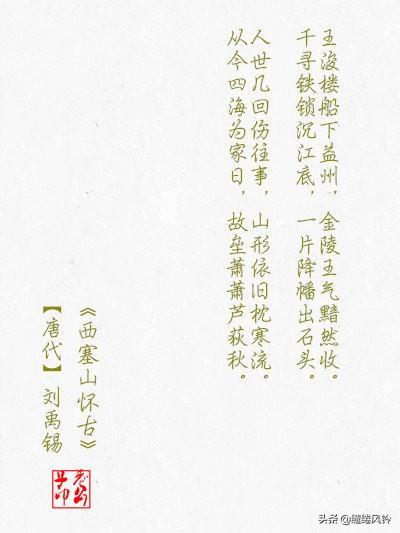 王浚楼船下益州，金陵王气黯然收。
千寻铁锁沉江底，一片降幡出石头。
人世几回伤往事，山形依旧枕寒流。
从今四海为家日，故垒萧萧芦荻秋。
《西塞山怀古》
【唐代】刘禹锡
头条@缱绻风铃